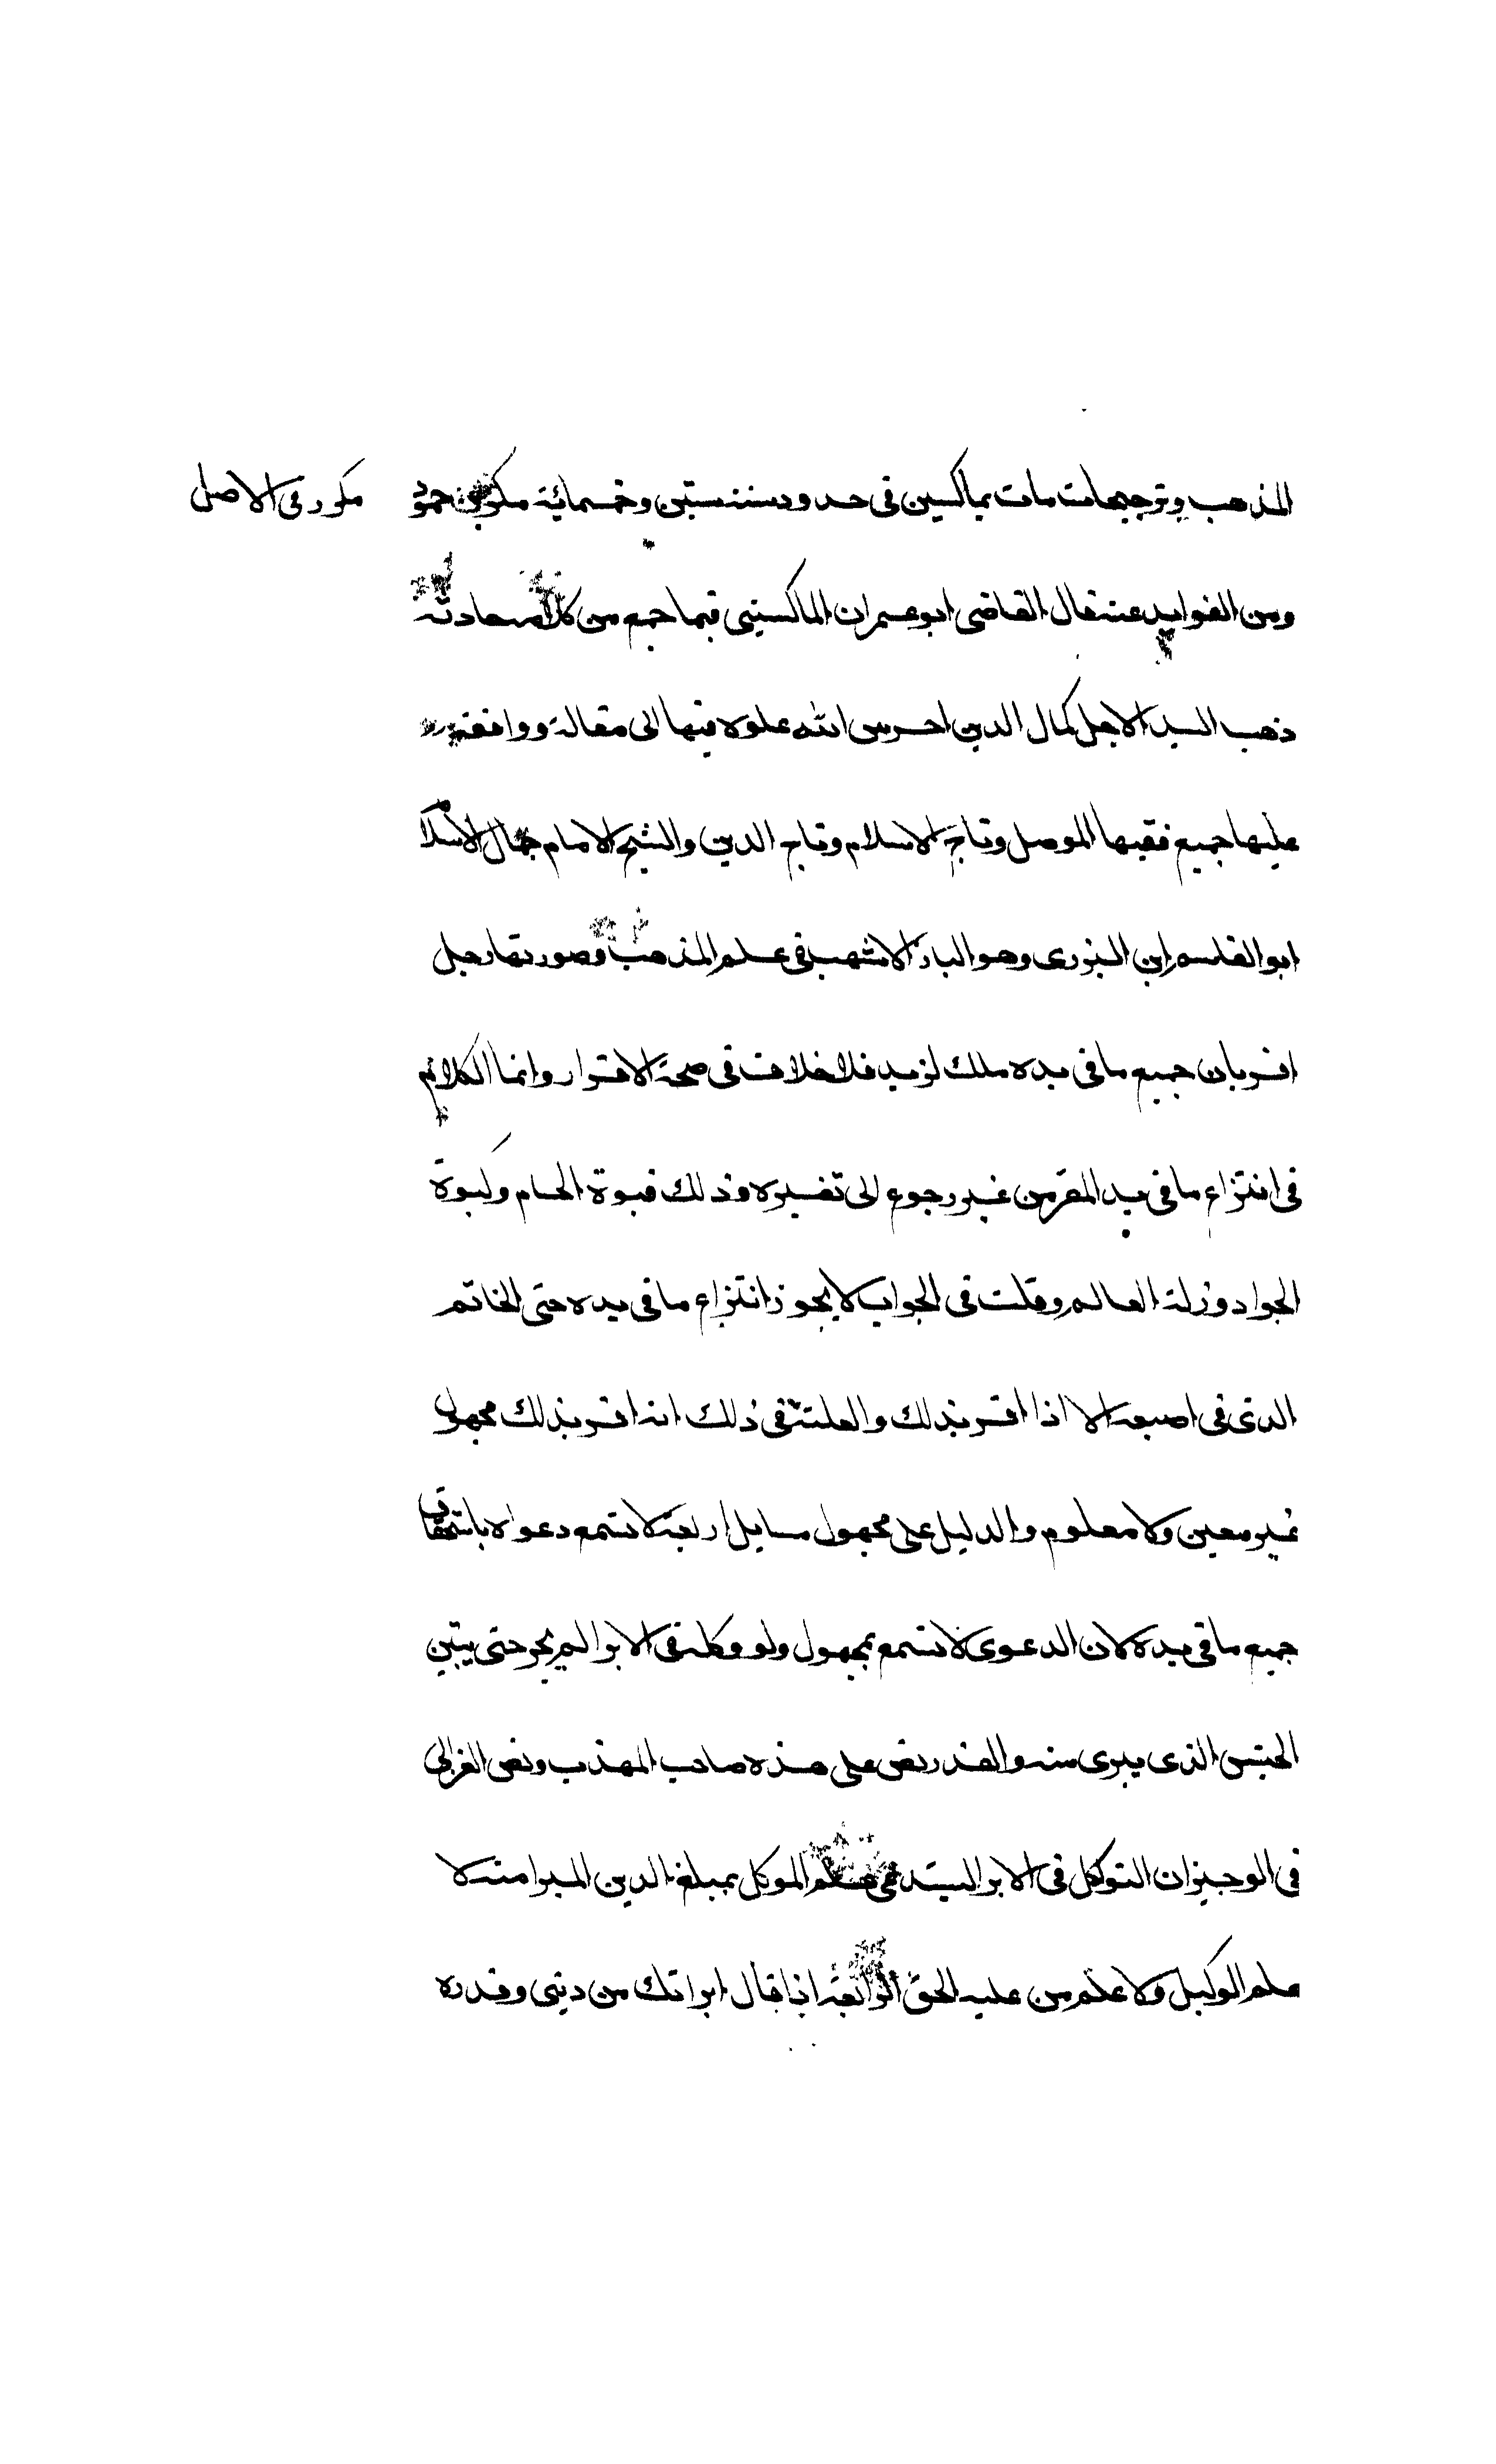 المذهب وتوجيهات مات بماكسين فى حدود سنة ستين وخمسمائة مكى بن حمود
مكور فى الاصل
ومن الفوايد عنه قال القاضى ابو عمران الماكسينى فيما جمع من كلام حادثة
ذهب السيد الاجل كمال الدين احرس الله علوه فيها الى مقالة ووافقه
عليها جميع فقيها الموصل وتاج الاسلام وتاج الدين والشيخ الامام جمال الاسلام
ابو القاسم ابن البزرى وهو الباز الاشهب فى علم المذهب وصورتها رجل
اقر بان جميع ما فى يده ملك لزيد فلا خلاف فى صحة الاقرار وانما الكلام
فى انتزاع ما فى يد المقر من غير رجوع الى تفسيره وذلك فبوة الحسام وكبوة
الجواد وزلة العالم وقلت فى الجواب لا يجوز انتزاع ما فى يده حتى الخاتم
الذى فى اصبعه الا اذا اقر بذلك والعلتة فى ذلك انه اقر بذلك مجهول
غير معين ولا معلوم والدليل على مجهول مسايل اربعة لا تسمع دعواه باستحقاق
جميع ما فى يده لان الدعوى لا تسمع بمجهول ولو وكله فى الابرا لم يجز حتى يبين
الجنس الذى يبرى منه والقدر نص على هذه صاحب المهذب ونص الغزالى
فى الوجيز ان التوكل فى الابرا يستدعى علم الموكل بمبلغ الدين المبرا منه لا
علم الوكيل ولا علم من عليه الحق الرابعة اذا قال ابراتك من دينى وقدره